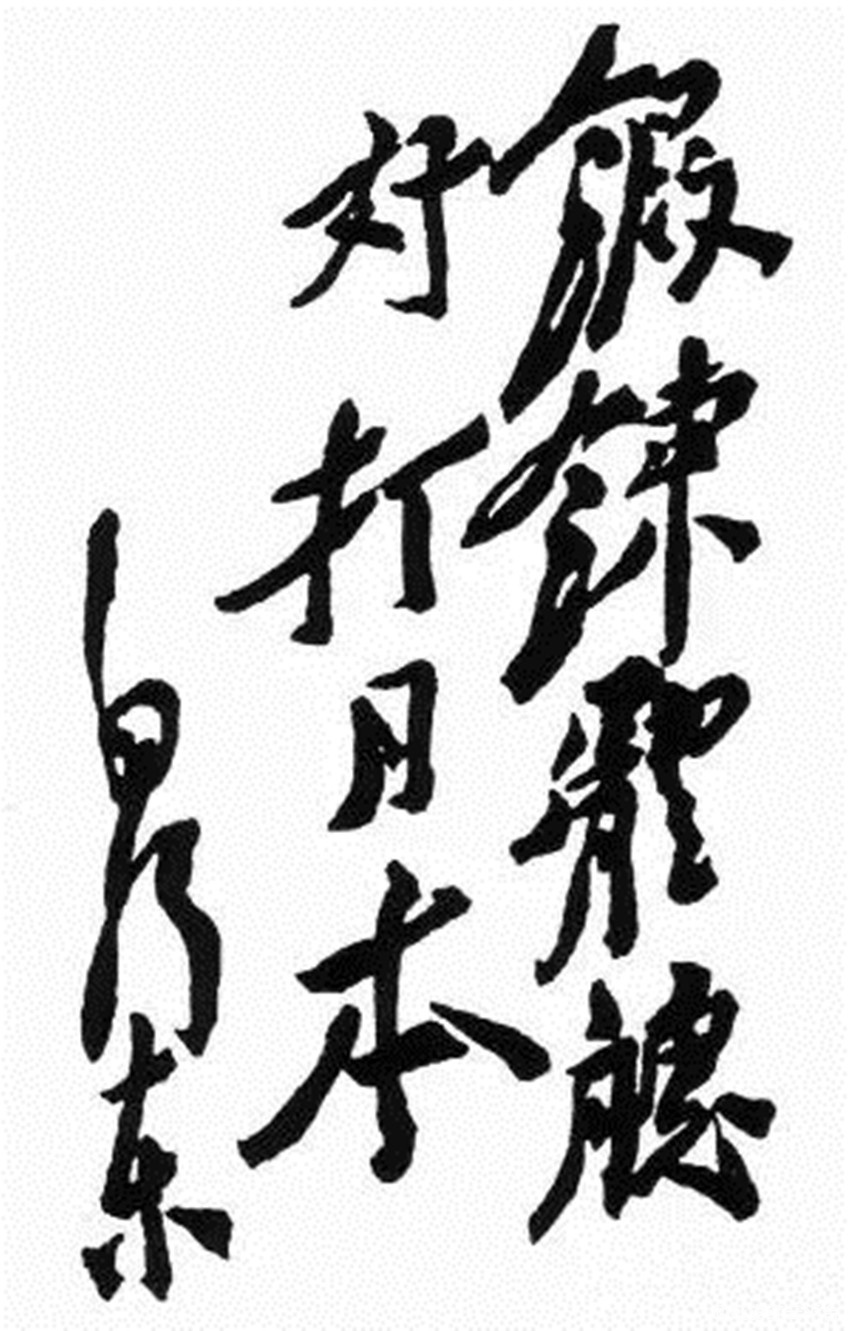 鍛鍊體魄
好打日本
毛澤東